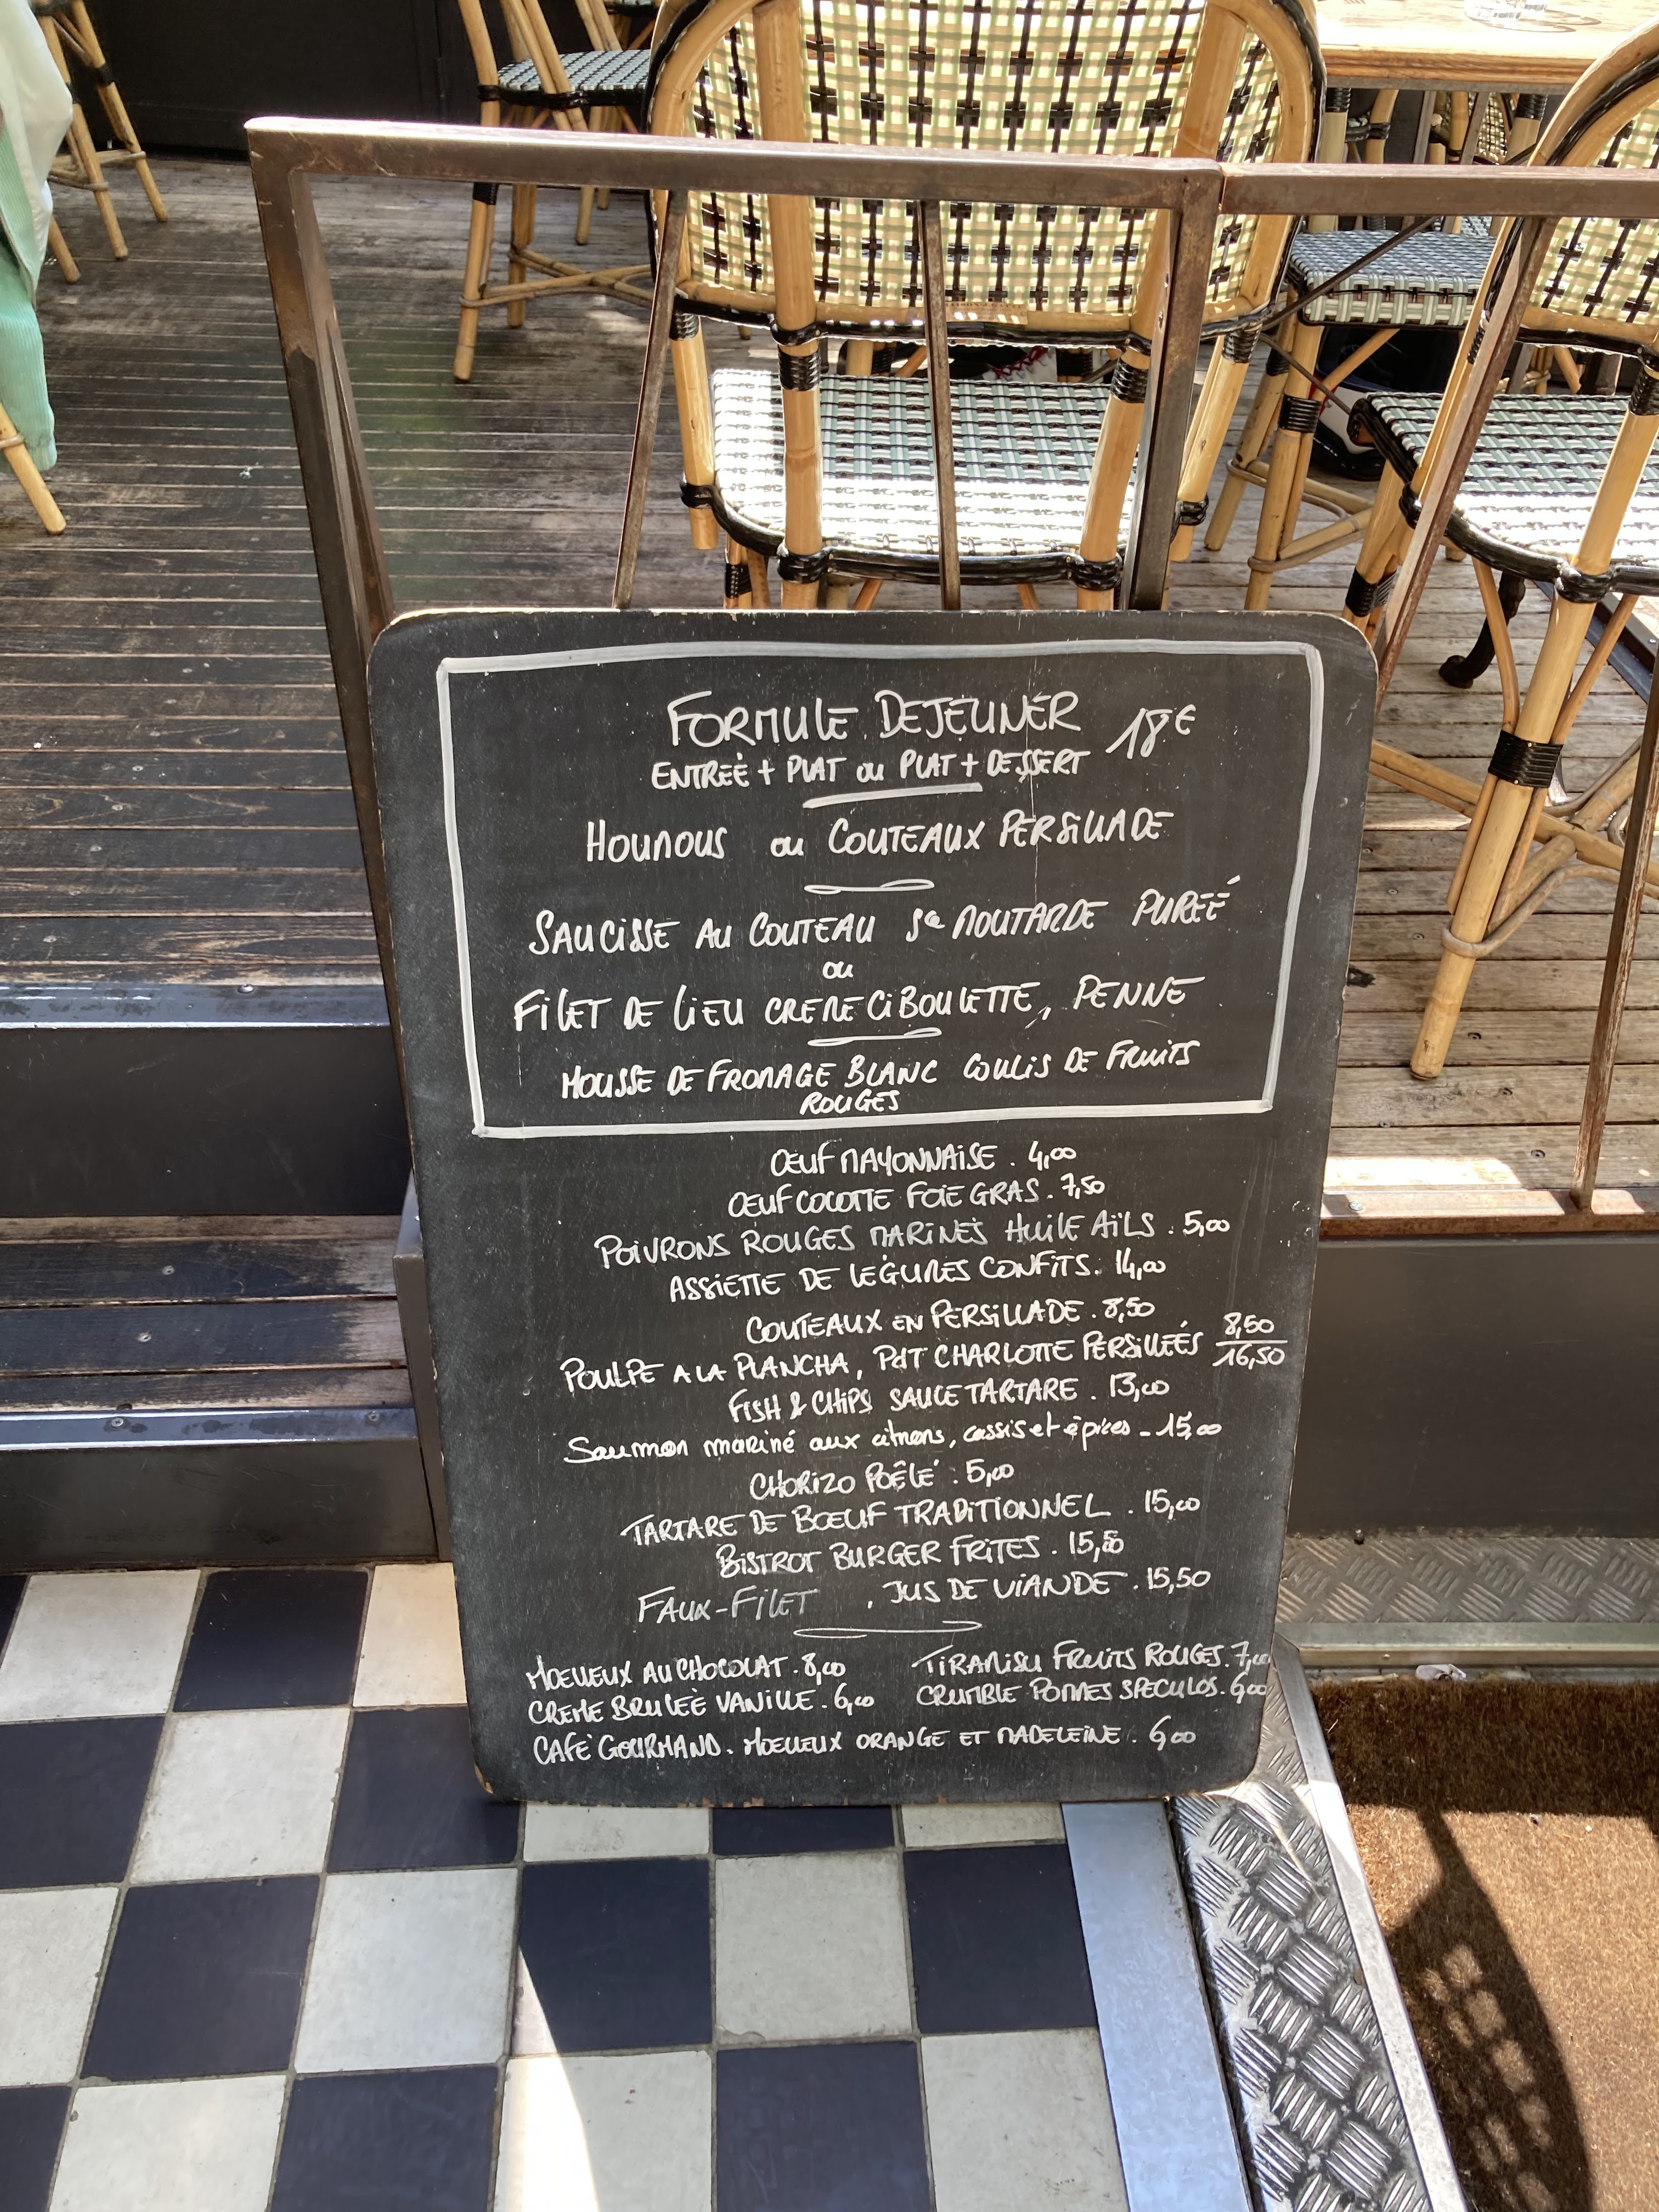 FORMULE DEJEUNER 18€
ENTREÉ + PLAT ou PLAT + DESSERT
HOUMOUS ou COUTEAUX PERSILLADE
SAUCISSE AU COUTEAU Sce MOUTARDE PUREÉ
ou
FILET DE LIEU CREME CIBOULETTE, PENNE
MOUSSE DE FROMAGE BLANC COULIS DE FRUITS
ROUGES
ŒUF MAYONNAISE . 4,00
ŒUF COCOTTE FOIE GRAS . 7,50
POIVRONS ROUGES MARINÉS HUILE AÏLS . 5,00
ASSIETTE DE LÉGUMES CONFITS . 14,00
COUTEAUX EN PERSILLADE . 8,50
POULPE A LA PLANCHA, PdT CHARLOTTE PERSILLEÉS 8,50
16,50
FISH & CHIPS SAUCE TARTARE . 13,00
Saumon mariné aux citrons, cassis et épices - 15,00
CHORIZO POÊLÉ . 5,00
TARTARE DE BŒUF TRADITIONNEL . 15,00
BISTROT BURGER FRITES . 15,50
FAUX-FILET , JUS DE VIANDE . 15,50
MOELLEUX AU CHOCOLAT . 8,00
CREME BRULEÉ VANILLE . 6,00
TIRAMISU FRUITS ROUGES . 7,00
CRUMBLE POMMES SPECULOS . 6,00
CAFÉ GOURMAND . MOELLEUX ORANGE ET MADELEINE . 6,00